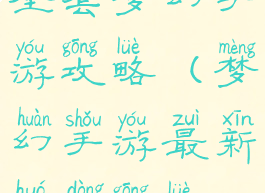 yóu gōng lüè mèng
游攻略(梦
huàn shǒu yóu zuì xīn
幻手游最新
huó dòng gōng lüè